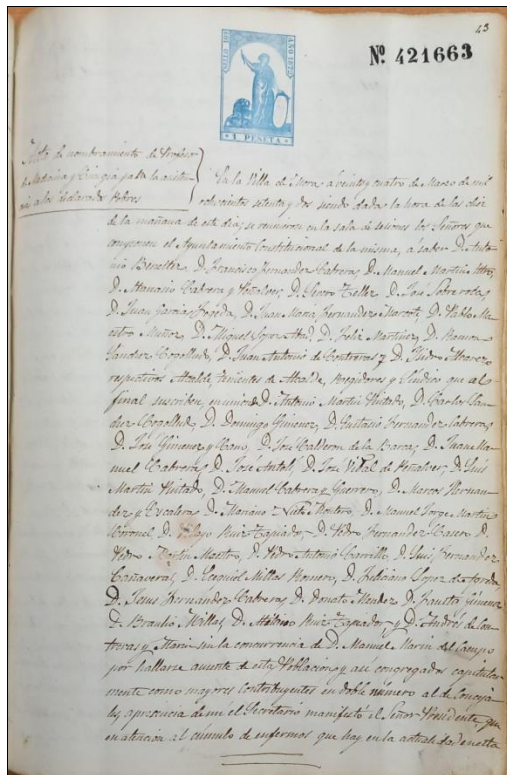 43
Nº 421663
SELLO 10º AÑO 1872
1 PESETA
Acta de nombramiento de Profesor
de Medicina y Cirugia para la asisten-
cia a los declarados Pobres
En la Villa de Mora, á veinte y cuatro de Marzo de mil
ochocientos setenta y dos siendo dada la hora de las diez
de la mañana de este dia; se reunieron en la sala de sesiones los Señores que
componen el Ayuntamiento Constitucional de la misma, á saber D. Anto-
nio Beneltez, D. Francisco Fernandez Cabrera, D. Manuel Martin
D. Atanacio Cabrera y D. Severo Tellez D. José
D. Juan Garcia D. Juan Maria Fernandez Marcote, D. Pablo Ma-
estro Muñoz D. Miguel Lopez Abad, D. Felix Martinez, D. Ramon
Sanchez Cogolludo, D. Juan Antonio de Contreras y D. Isidro Alvarez
respectivos Alcalde, Tenientes de Alcalde, Regidores y Sindico que al
final suscriben, en union de D. Antonio Martin Hurtado, D. Carlos San-
chez Cogolludo, D. Domingo Gimenez, D. Gustavo Fernandez Cabrera,
D. José Gimenez y Cano, D. José Calderon de la Barca, D. Juan Ma-
nuel Cabrera, D. José Antoli, D. José Vidal de Peñalver, D. Luis
Martin Hurtado, D. Manuel Cabrera y Guerrero, D. Marcos Hernan-
dez y Escalera, D. Mariano Nuño Montero, D. Manuel Jorge Martin
Coronel, D. Pelayo Ruiz Tapiador, D. Pedro Fernandez Casero D.
Pedro Martin Maestro, D. Pedro Antonio Carrillo, D. Luis Fernandez
Cañaveral, D. Ezequiel Millas Romero, D. Feliciano Lopez de
D. Jesus Fernandez Cabrera, D. Donato Mendez D. Fausto Gimenez
D. Braulio Millas, D. Ruiz Tapiador y D. Andrés de Con-
treras y Marin sin la concurrencia de D. Manuel Marin del Campo
por hallarse ausente de esta Poblacion y asi congregados capitular-
mente como mayores Contribuyentes en doble número al de Conceja-
les á presencia de mí el Secretario manifestó el Señor Presidente, que
en atencion al cúmulo de enfermos que hay en la actualidad en esta